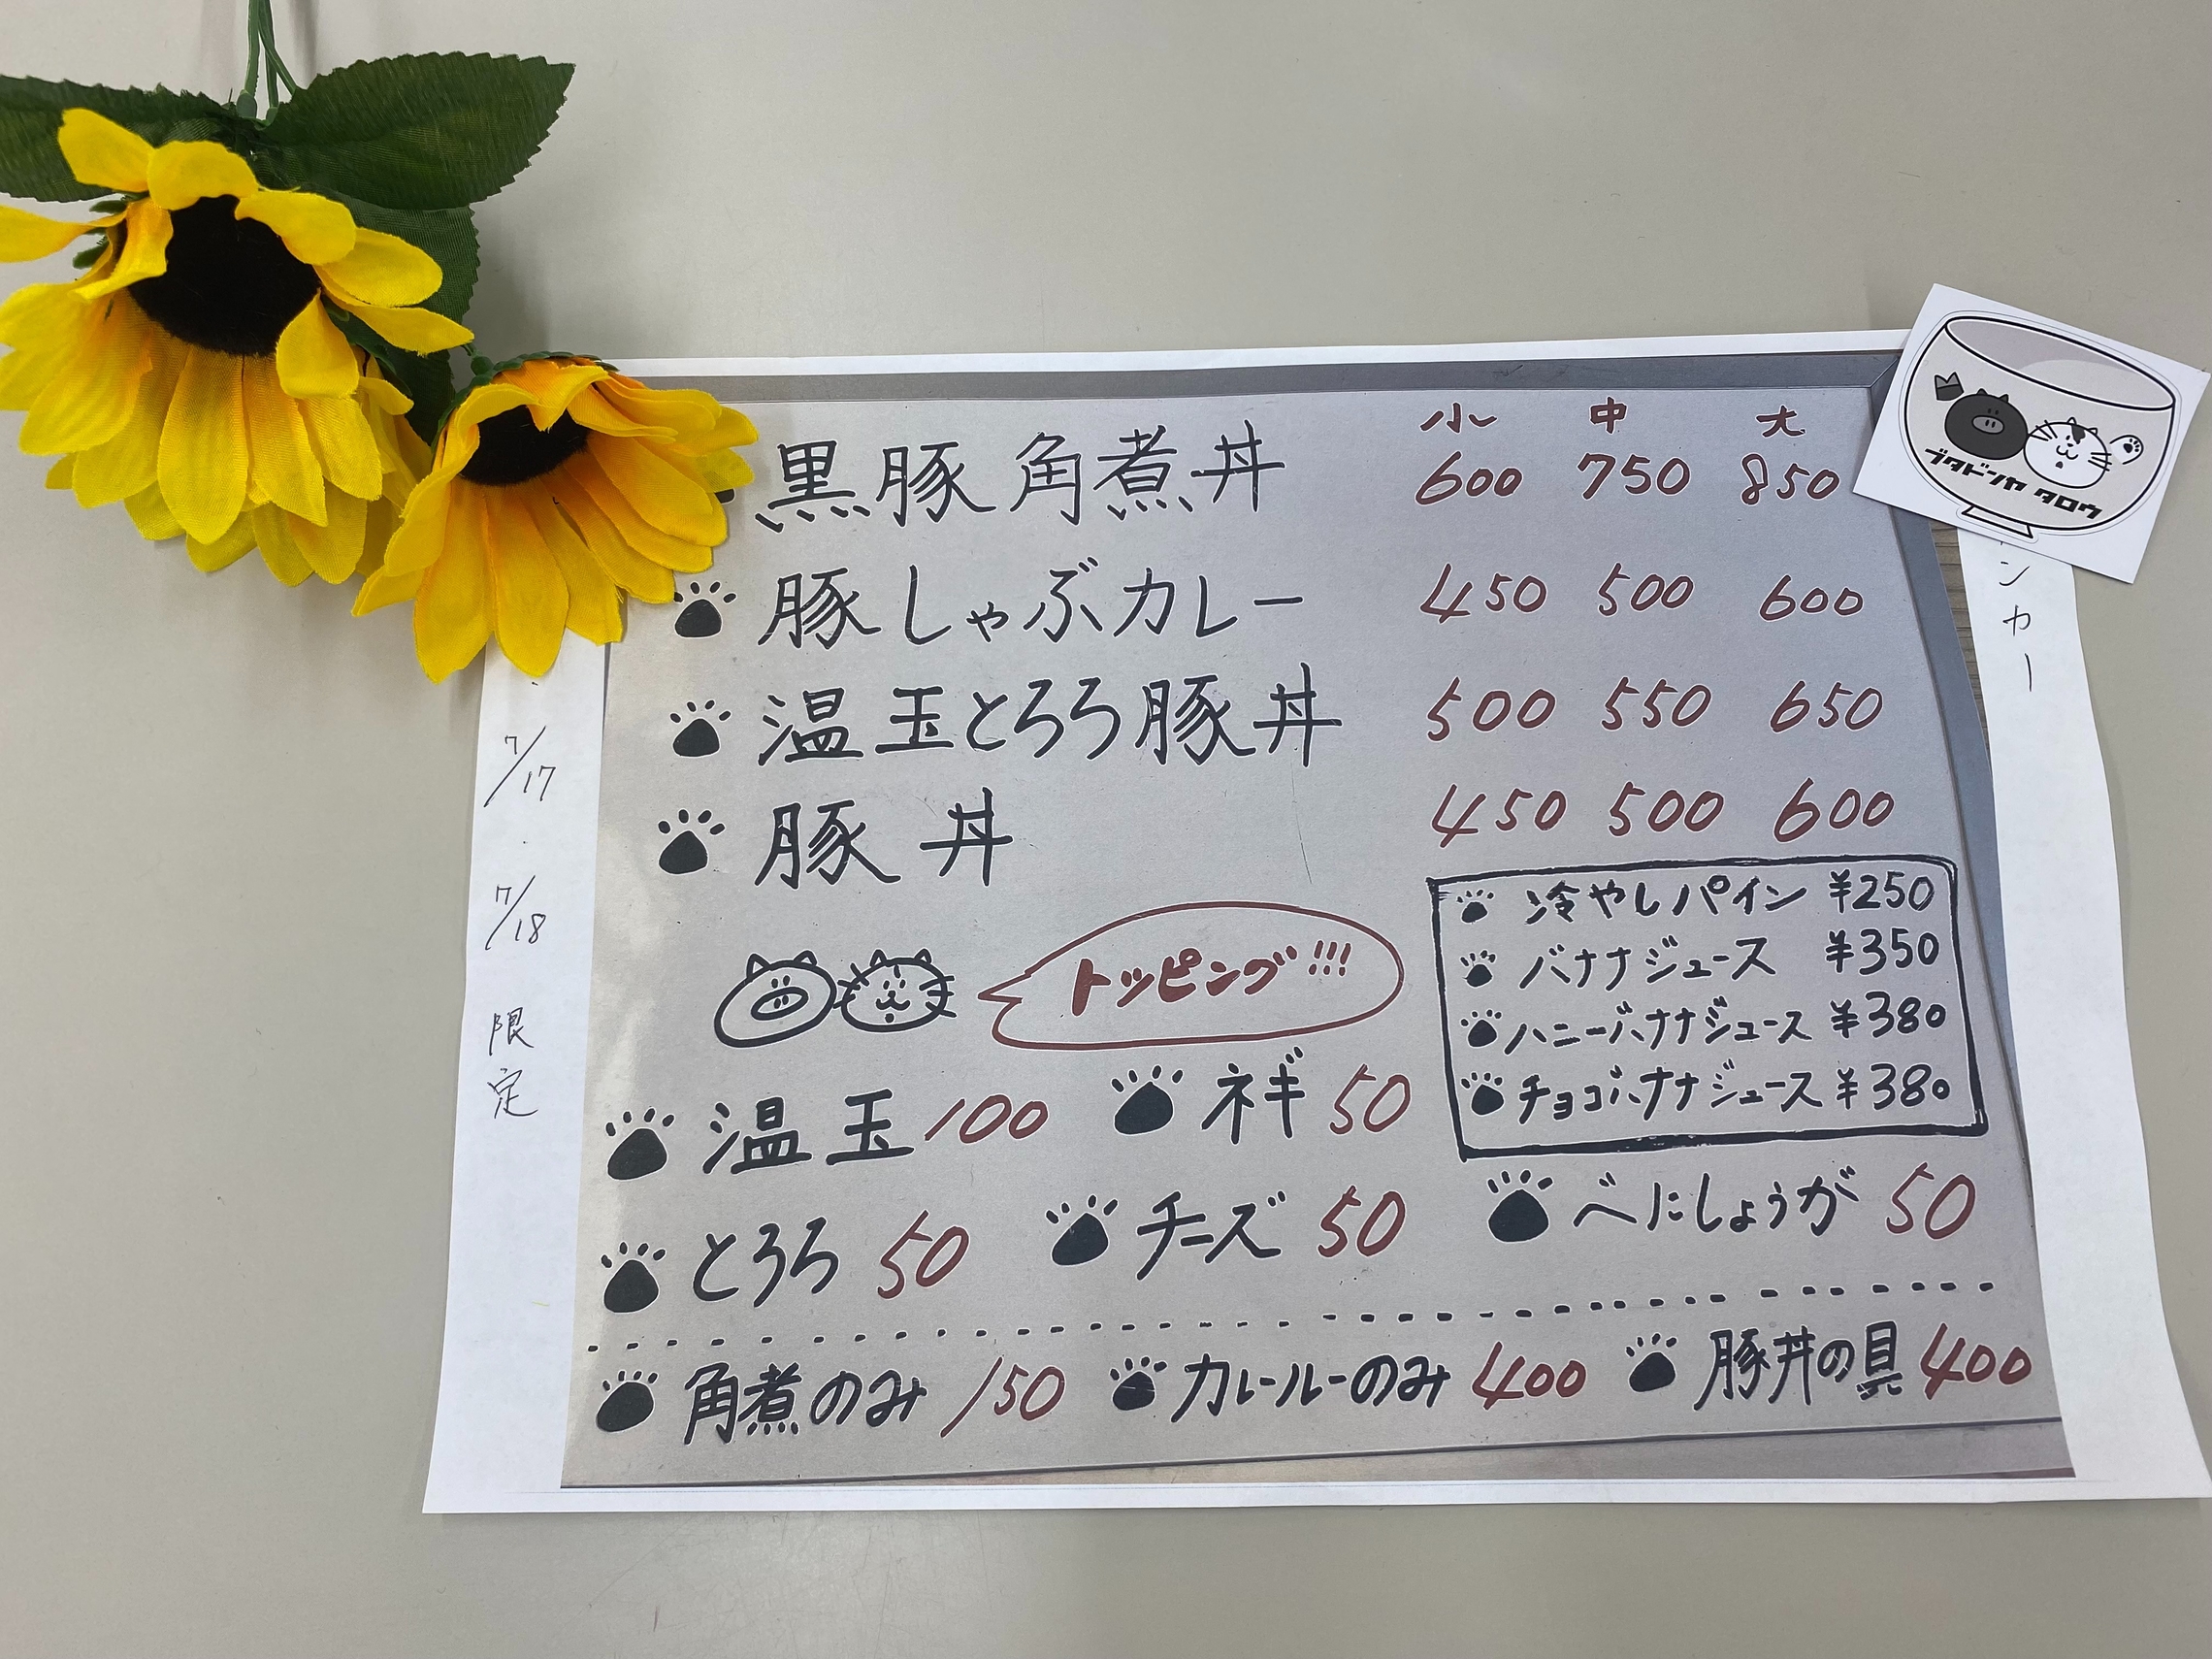 小 中 大
黒豚角煮丼 600 750 850
豚しゃぶカレー 450 500 600
温玉とろろ豚丼 500 550 650
豚丼 450 500 600
トッピング!!!
温玉 100 ネギ 50
とろろ 50 チーズ 50 べにしょうが 50
角煮のみ 150 カレールーのみ 400 豚丼の具 400
冷やしパイン ¥250
バナナジュース ¥350
ハニーバナナジュース ¥380
チョコバナナジュース ¥380
ブタドンヤ タロウ
ンカー
7/17・7/18 限定